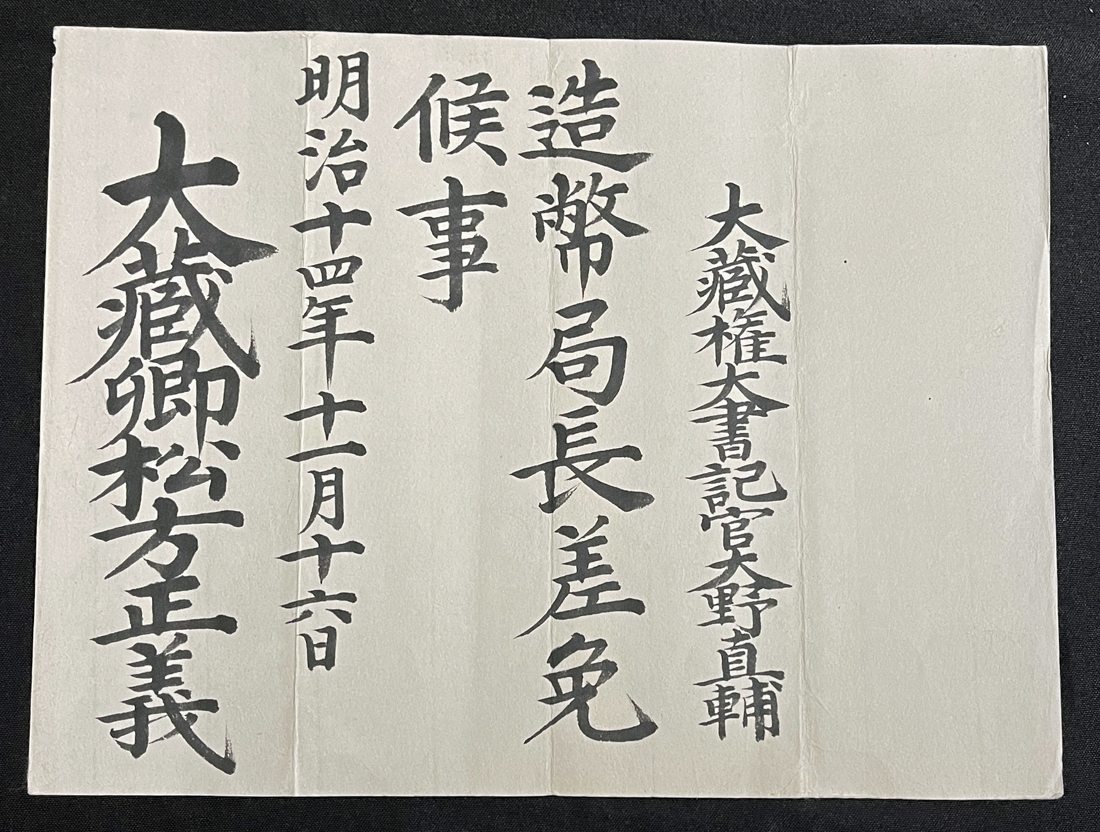 大藏権大書記官大野直輔
造幣局長差免
候事
明治十四年十一月十六日
大藏卿松方正義